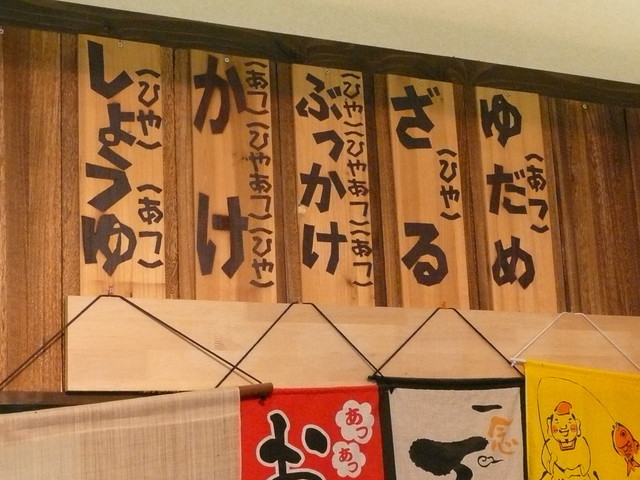 ゆだめ
(あつ)
ざる
(ひや)
ぶっかけ
(ひや)(ひやあつ)(あつ)
かけ
(あつ)(ひやあつ)(ひや)
しょうゆ
(ひや)(あつ)
お
あっ
あっ